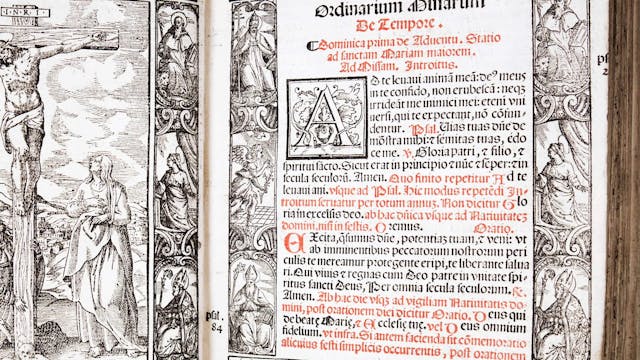 I N R I
Ordinarium Missarum
De Tempore.
Dominica prima de Aduentu. Statio
ad sanctam Mariam maiorem.
Ad Missam. Introitus.
AD te leuaui animã meã: deꝰ meus
in te confido, non erubescã: neqꝫ
irrideãt me inimici mei: eteni vni
uersi, qui te expectant, nõ cõfun-
dentur. Psal. Uias tuas dñe de
mõstra mihi: & semitas tuas, edo
ce me. ℣. Gloria patri, & filio, &
spiritui sancto. Sicut erat in principio & nũc & semper: & in
secula seculorũ. Amen. Quo finito repetitur Ad te
leuaui ani. vsqꝫ ad Psal. Hic modus repetẽdi In-
troitum seruatur per totum annum. Non dicitur Glo
ria in excelsis deo. ab hac dñica vsqꝫ ad Natiuitatẽ
domini, nisi in festis. Oremus. Oratio.
EXcita, q̃sumus dñe, potentiam tuam, & veni: vt
ab imminentibus peccatorum nostrorum peri
culis te mereamur protegente eripi, te liberante salua
ri. Qui viuis & regnas cum Deo patre in vnitate spi-
ritus sancti Deus, Per omnia secula seculorum. ℟.
Amen. Ab hac die vsqꝫ ad vigiliam Natiuitatis do-
mini, post orationem diei dicitur Oratio. Deus
qui de beatę Marię, & Ecclesię tuę. vel Deus omnium
fidelium. vt infra. Si autem facienda sit cõmemoratio
alicuius festi simplicis occurrentis, post orationem
psal.
84